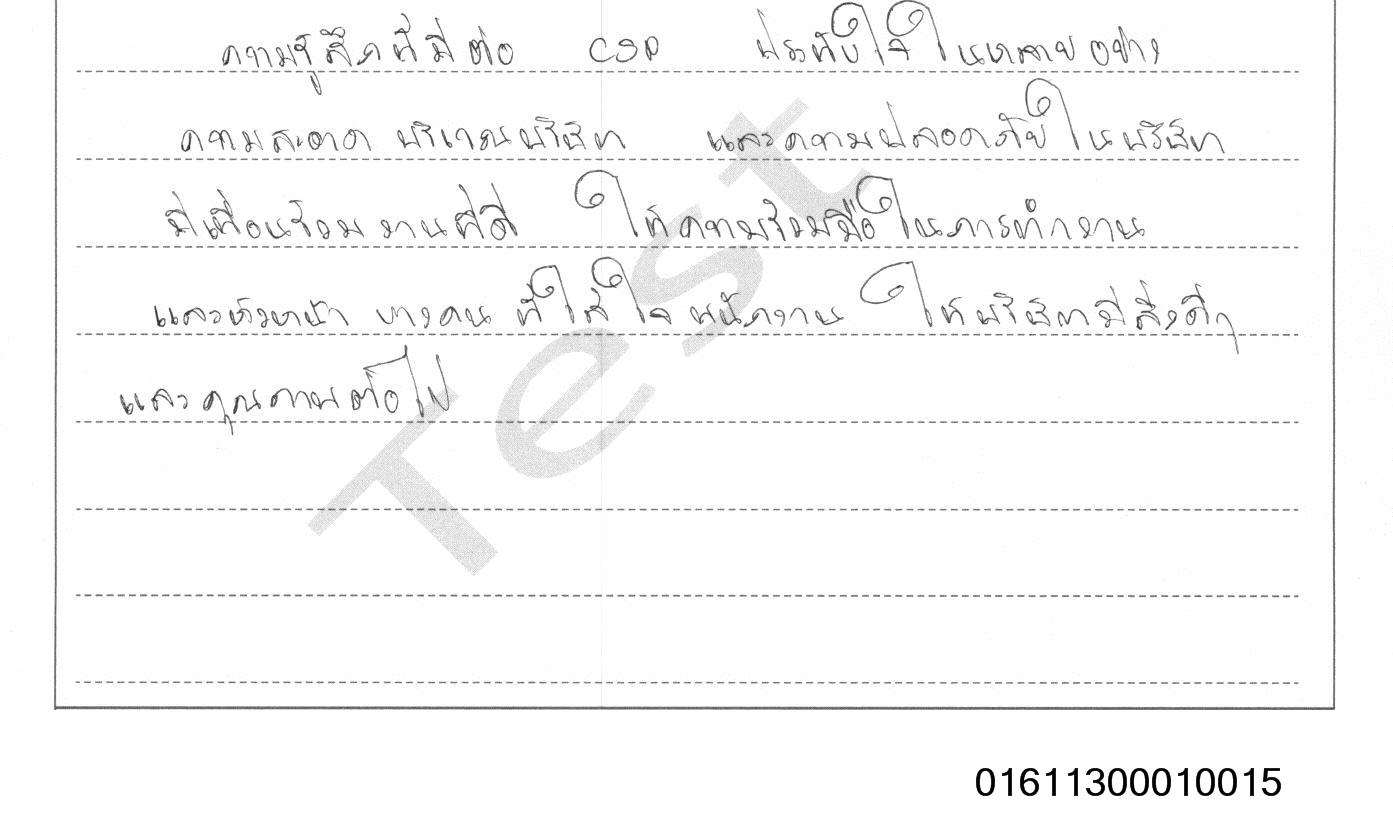 ความรู้สึกที่มีต่อ CSP ประทับใจในหลายอย่าง
ความสะอาด บริเวณบริษัท และความปลอดภัยในบริษัท
มีเพื่อนร่วมงานที่ดี ให้ความร่วมมือในการทำงาน
และหัวหน้า บางคน ที่ใส่ใจ พนักงาน ให้บริษัทมีสิ่งดีๆ
และคุณภาพต่อไป
Test
01611300010015